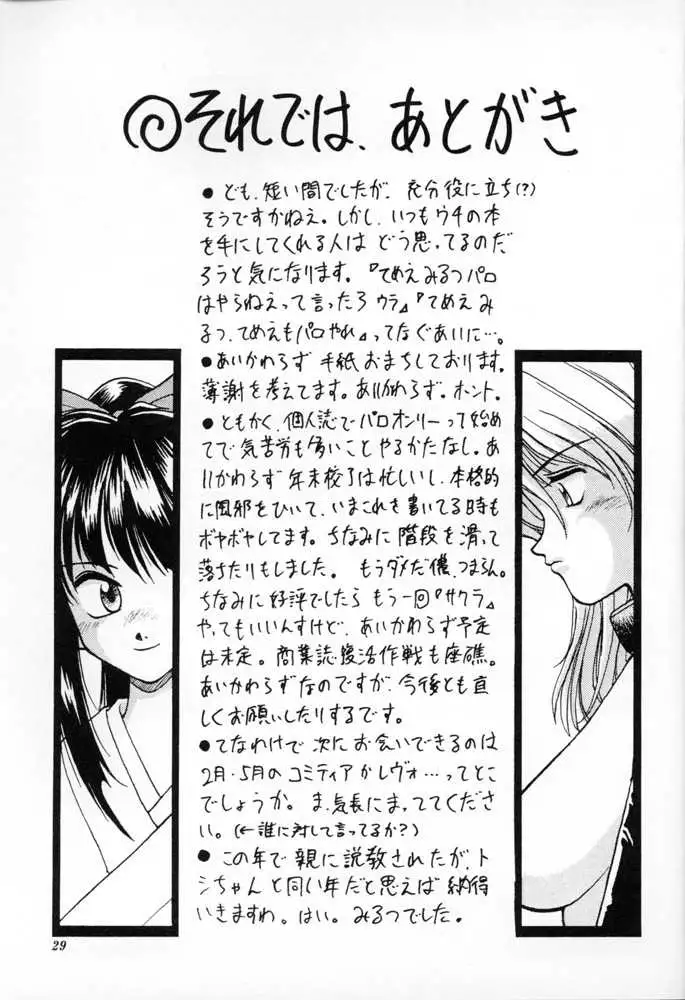 それでは、あとがき
●ども、短い間でしたが、充分役に立ち(?)
そうですかねえ。しかし、いつもウチの本
を手にしてくれる人は どう思ってるのだ
ろうと気になります。『てめえみるつパロ
はやらねえって言ったろ ウラ』『てめえ み
るつ、てめえもパロやれ』ってなぐあいに…。
●あいかわらず 手紙 おまちしております。
薄謝を考えてます。あいかわらず。ホント。
●ともかく、個人誌でパロオンリーって始め
てで気苦労も多いことやるかたなし。あ
いかわらず 年末校了は忙しいし、本格的
に風邪をひいて、いまこれを書いてる時も
ボヤボヤしてます。ちなみに 階段を滑って
落ちたりもしました。 もうダメだ儂、つまらん。
ちなみに 好評でしたら もう一回『サクラ』
やってもいいんすけど、あいかわらず予定
は未定。商業誌復活作戦も座礁。
あいかわらずなのですが、今後とも宜
しくお願いしたりするです。
●てなわけで 次に お会いできるのは
2月・5月の コミティアかレヴォ…ってとこ
でしょうか。ま、気長にまっててくださ
い。(←誰に対して言ってるか?)
● この年で 親に説教されたが、ト
シちゃんと同い年だと思えば 納得
いきますわ。はい。みるつでした。
29